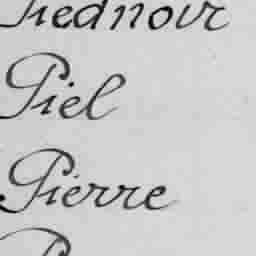 Piednoir
Piel
Pierre